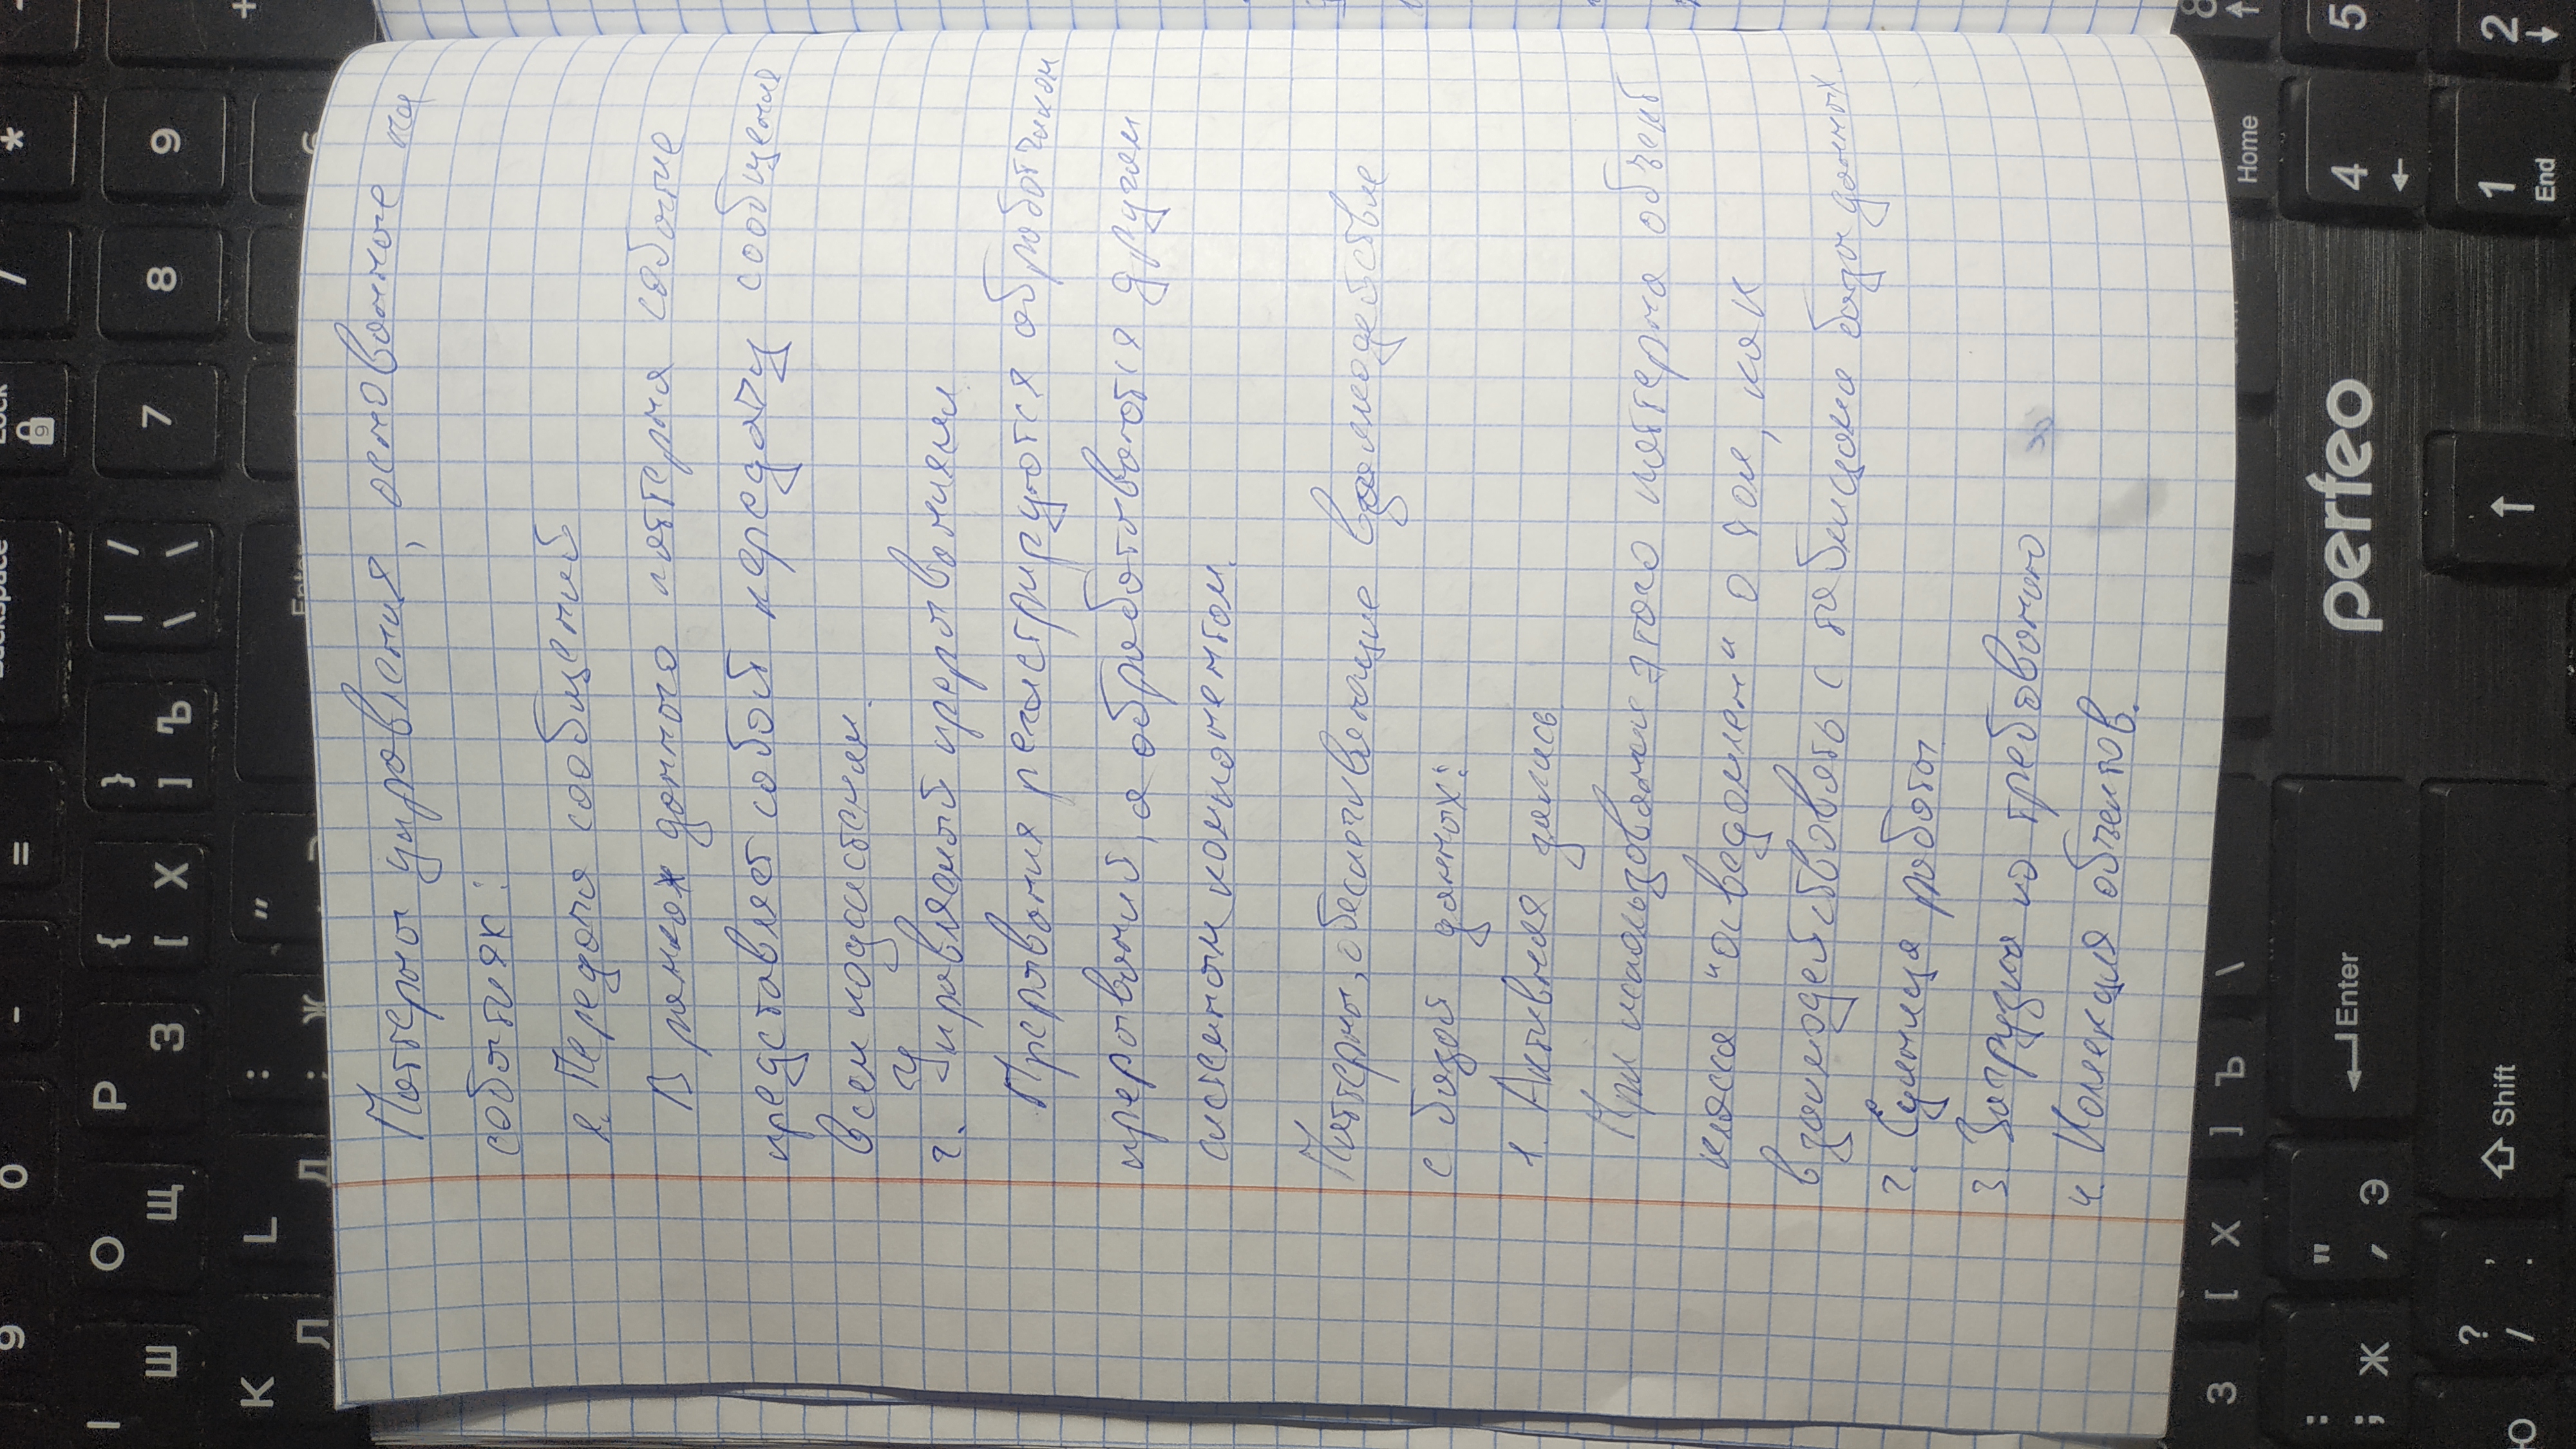 9 0 - = Backspace Lock 9 / *
I Ш O Щ P З { [ Х } ] Ъ | / \ \ 7 8 9 +
K Л L Д : ; Ж " Э Enter 6
Паттерны управления, основанные на
событиях:
1. Передача сообщений
В рамках данного паттерна событие
представляет собой передачу сообщения
всем подсистемам.
2. Управляемый прерываниями
Прерывания регистрируются обработчиком
прерываний, а обрабатываются другим
системным компонентом.
Паттерны, обеспечивающие взаимодействие
с базой данных:
1. Активная запись
При использовании этого паттерна объект
класса "осведомлен" о том, как
взаимодействовать с таблицами базы данных.
2. Единица работы
3. Загрузка по требованию
4. Коллекция объектов.
З [ Х ] Ъ \ Home 8
: ; Ж " ' Э Enter perfeo 4 5
Ю ? / , . Shift 1 End 2